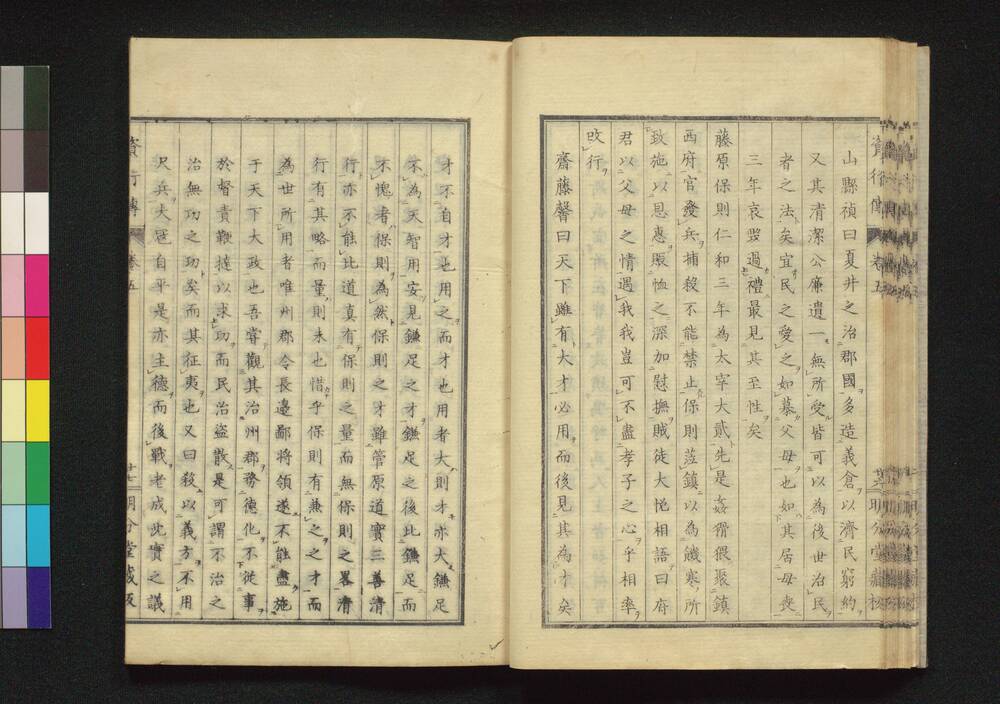 山縣禎曰夏井之治郡國多造義倉以濟民窮約
又其清潔公廉遺一無所受皆可以為後世治民
者之法矣宜民之愛之如慕父母也如其居母喪
三年哀毀過禮最見其至性矣
藤原保則仁和三年為太宰大貳先是姦猾猥聚鎮
西府官發兵捕殺不能禁止保則莅鎮以為饑寒所
致施以恩惠賑恤之深加慰撫賊徒大悅相語曰府
君以父母之情遇我我豈可不盡孝子之心乎相率
改行
齋藤馨曰天下雖有大才必用而後見其為才矣
才不自才也用之而才也用者大則才亦大鎌足
不為天智用安見鎌足之才鎌足之後比鎌足而
不愧者保則為然保則之才雖管原道實三善清
行亦不能比道真有保則之量而無保則之畧清
行有其略而量則未也惜乎保則有兼之之才而
為世所用者唯州郡令長邊鄙將領遂不能盡施
于天下大政也吾嘗觀其治州郡務德化不從事
於督責鞭撻以求功而民治盜散是可謂不治之
治無功之功矣而其征夷也又曰殺以義方不用
尺兵大寇自平是亦主德而後戰者成此實之議
資行傳 卷五 廿七 明分堂藏板